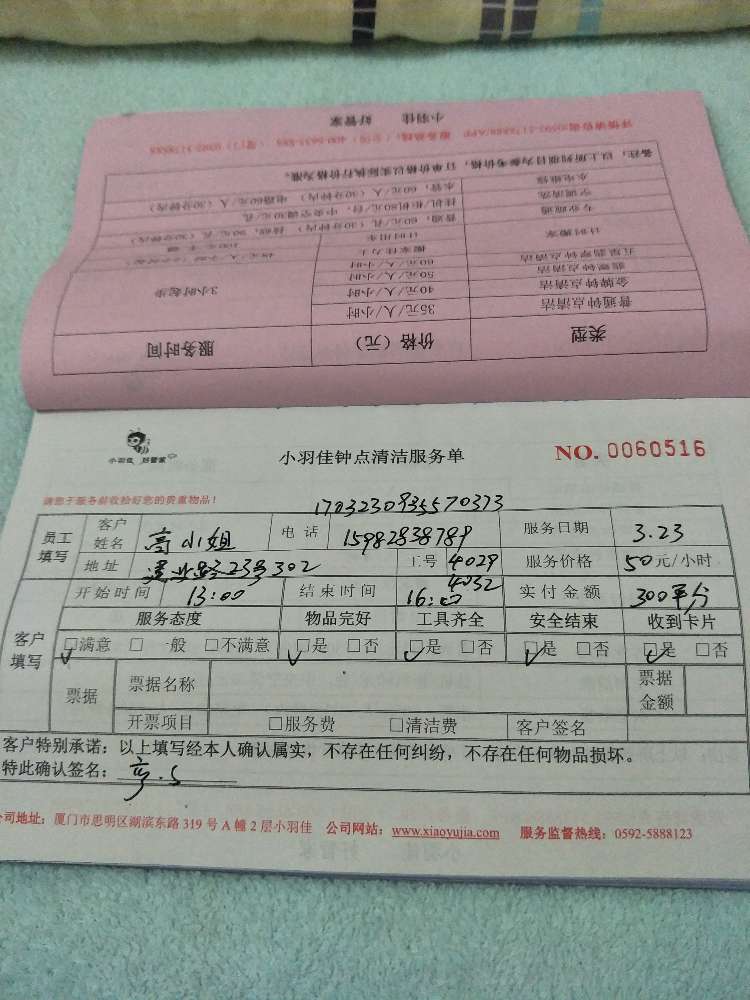 小羽佳 好管家
备注：以上所列项目为参考价格，订单价格以实际执行价格为准。
水电维修 水管：60元/人（30分钟内） 电路60元/人（30分钟内）
空调清洗 挂机/柜机80元/台，中央空调30元/孔
专业疏通 普通：60元/孔（30分钟内）
计时搬家 计时用车
搬家住力工
五星翡翠钟点清洁 60元/人/小时
翡翠钟点清洁 50元/人/小时
金牌钟点清洁 40元/人/小时
普通钟点清洁 35元/人/小时
3小时起步
类型 价格（元） 服务时间
小羽佳 好管家
小羽佳钟点清洁服务单 NO. 0060516
请您于服务前收拾好您的贵重物品！
1703230935570373
员工填写 客户姓名 高小姐 电话 15982838789 服务日期 3.23
地址 23号302 工号 4029 4032 服务价格 50元/小时
客户填写 开始时间 13:00 结束时间 16:00 实付金额 300
服务态度 物品完好 工具齐全 安全结束 收到卡片
□满意 □一般 □不满意 □是 □否 □是 □否 □是 □否 □是 □否
票据 票据名称 票据金额
开票项目 □服务费 □清洁费 客户签名
客户特别承诺：以上填写经本人确认属实，不存在任何纠纷，不存在任何物品损坏。
特此确认签名：
公司地址：厦门市思明区湖滨东路 319 号 A 幢 2 层小羽佳 公司网站：www.xiaoyujia.com 服务监督热线：0592-5888123